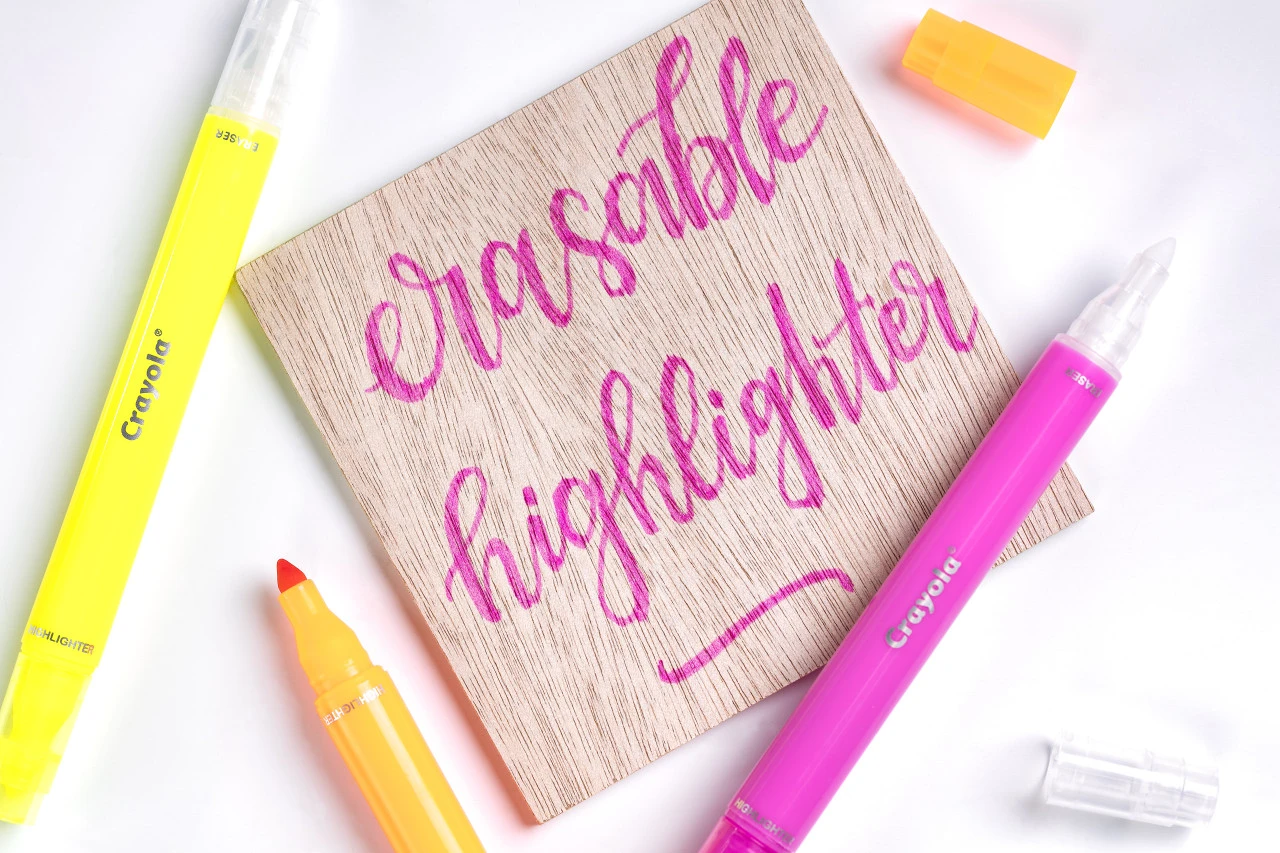 erasable
highlighter
ERASER
Crayola®
HIGHLIGHTER
HIGHLIGHTER
ERASER
Crayola®
HIGHLIGHTER